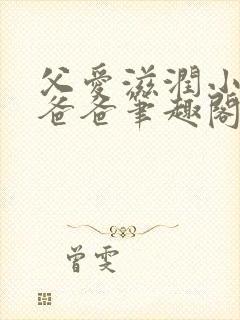 父愛滋潤小
爸爸筆趣閣
曾雯